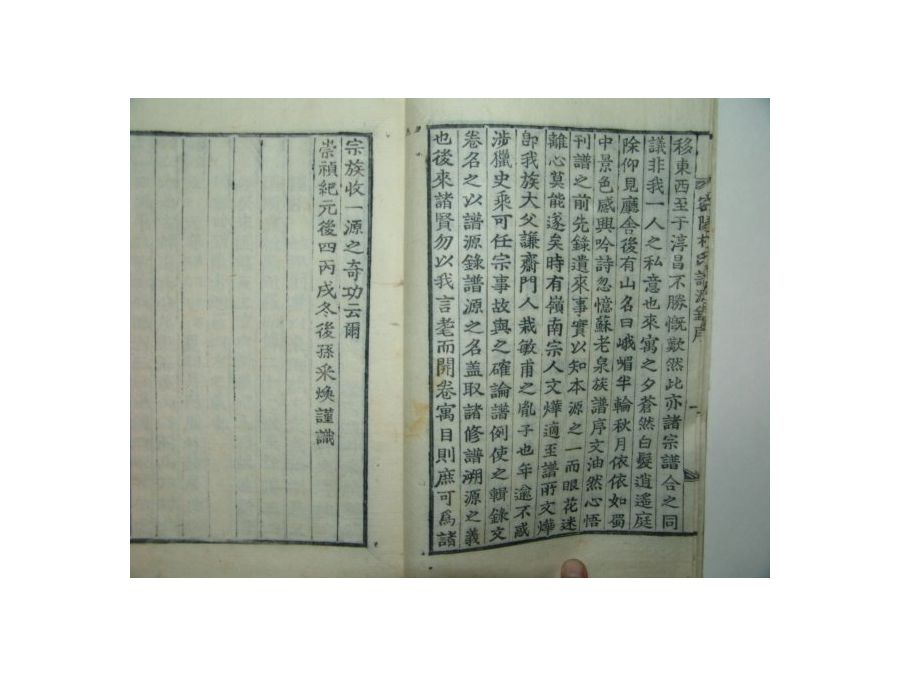 密陽朴氏譜源錄序
移東西至于淳昌不勝慨歎然此亦諸宗譜合之同
議非我一人之私意也來寓之夕蒼然白髮逍遙庭
除仰見廳舍後有山名曰峨嵋半輪秋月依依如蜀
中景色感興吟詩忽憶蘇老泉族譜序文油然心悟
刊譜之前先錄遺來事實以知本源之一而眼花迷
離心莫能遂矣時有嶺南宗人文燁適至譜所文燁
卽我族大父謙齋門人栽敏甫之胤子也年逾不惑
涉獵史乘可任宗事故與之確論譜例使之輯錄文
卷名之以譜源錄譜源之名盖取諸修譜溯源之義
也後來諸賢勿以我言耄而開卷寓目則庶可爲諸
宗族收一源之奇功云爾
崇禎紀元後四丙戌冬後孫采煥謹識